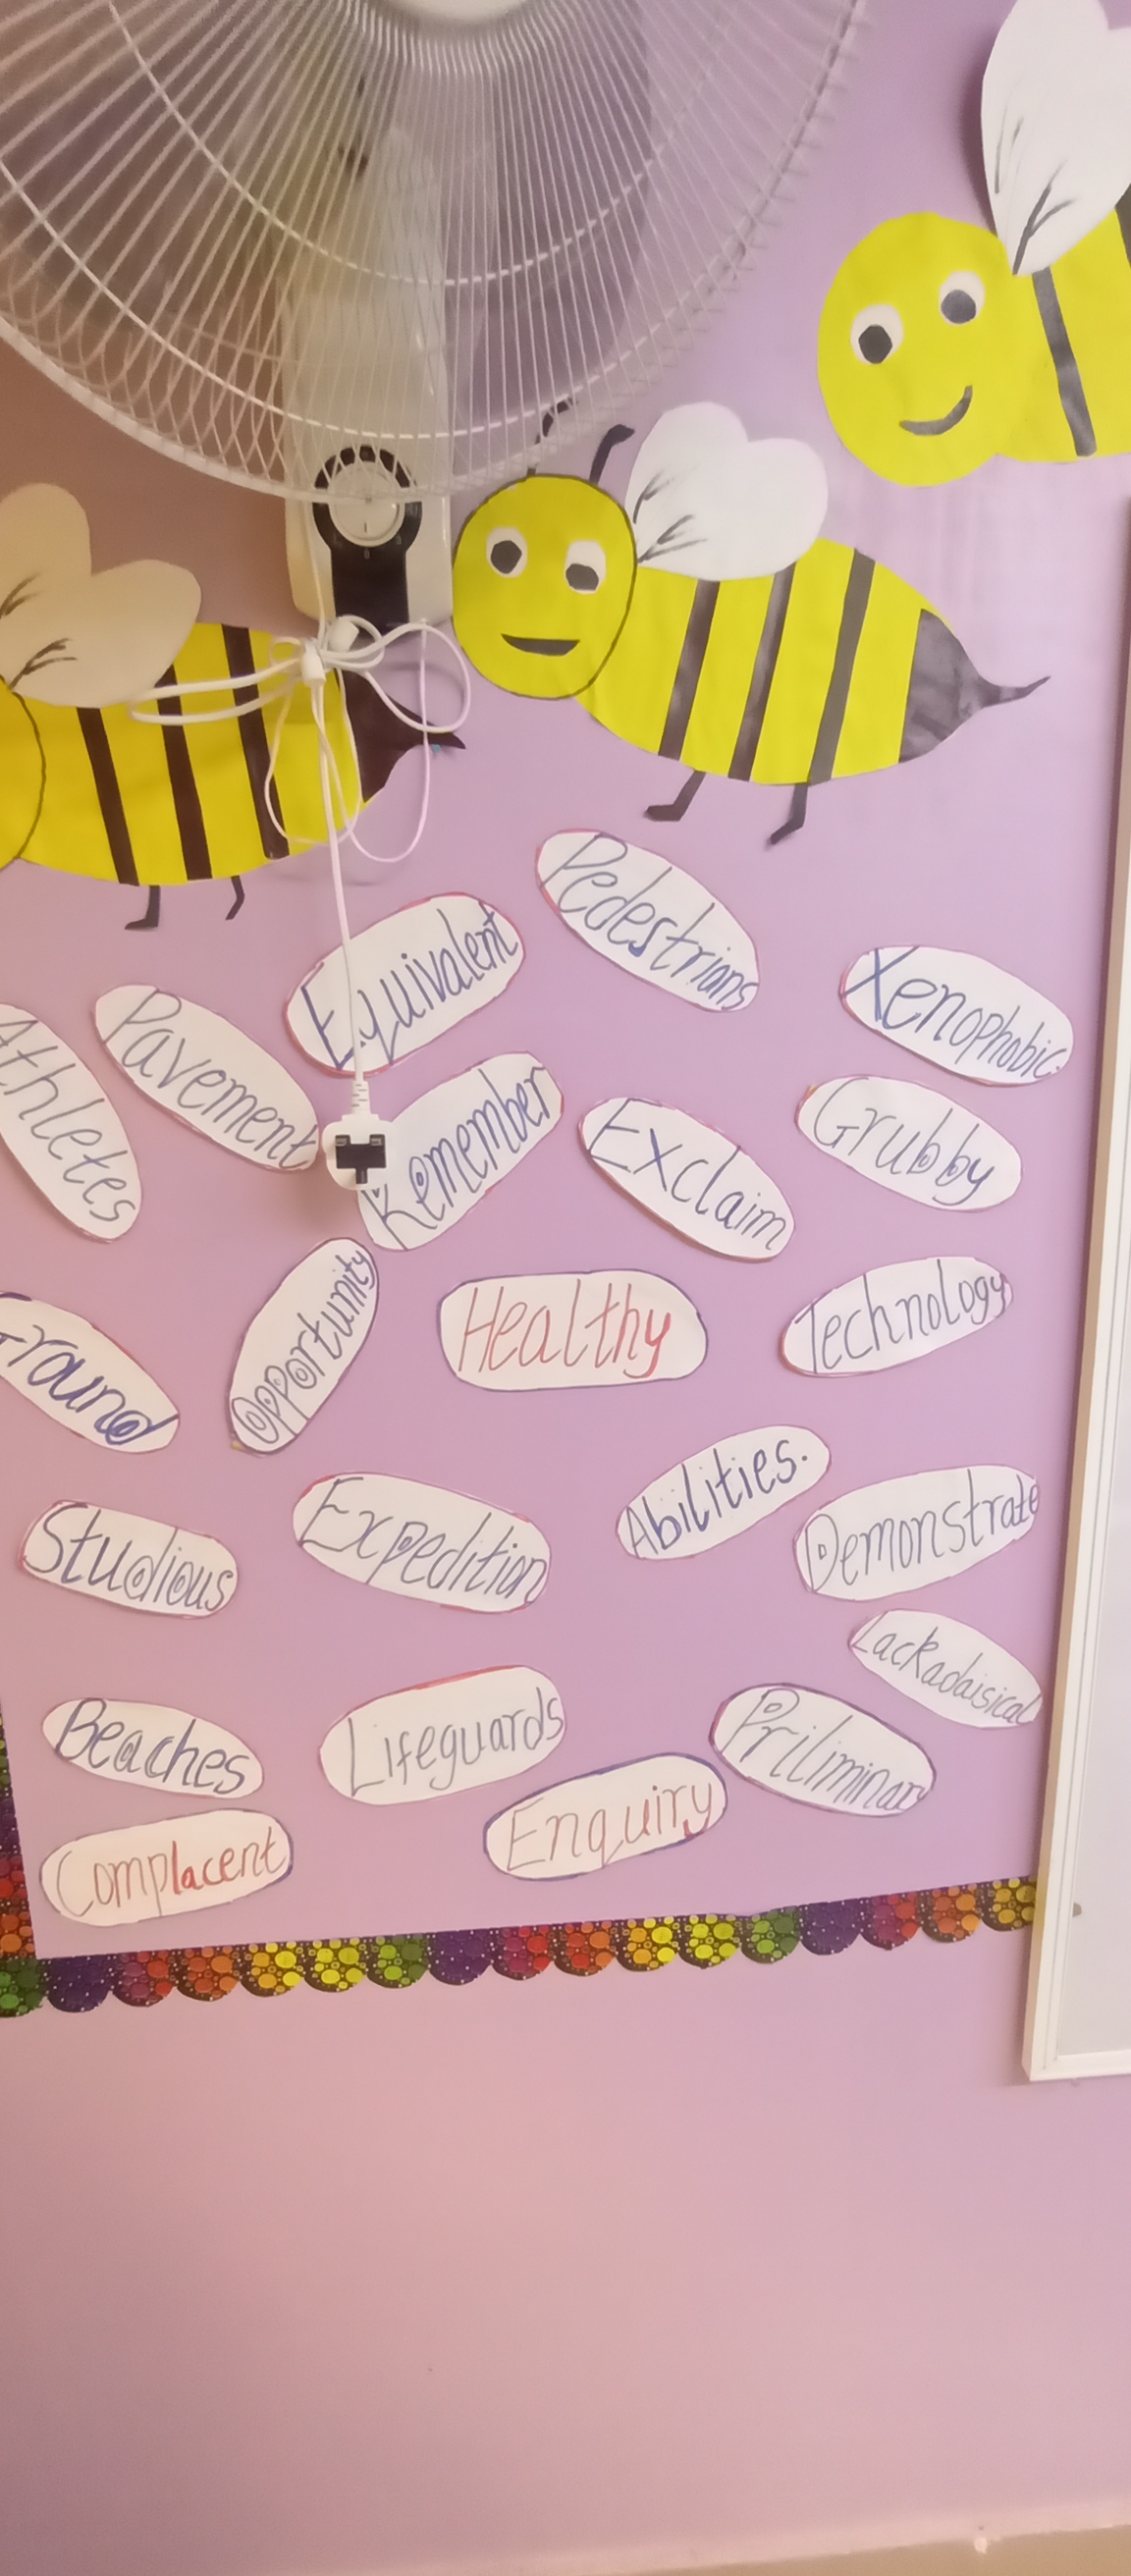 Pedestrians
Equivalent
Xenophobic
Pavement
Athletes
Remember
Exclaim
Grubby
Opportunity
Healthy
Technology
Ground
Abilities.
Studious
Expedition
Demonstrate
Lackadaisical
Beaches
Lifeguards
Priliminary
Enquiry
Complacent